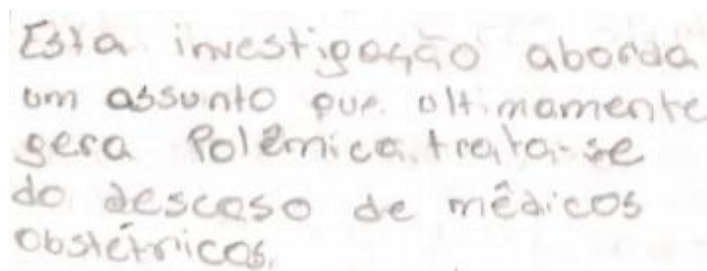 Esta investigação aborda
um assunto que ultimamente
gera Polêmica. trata-se
do descaso de mêdicos
obstétricos.